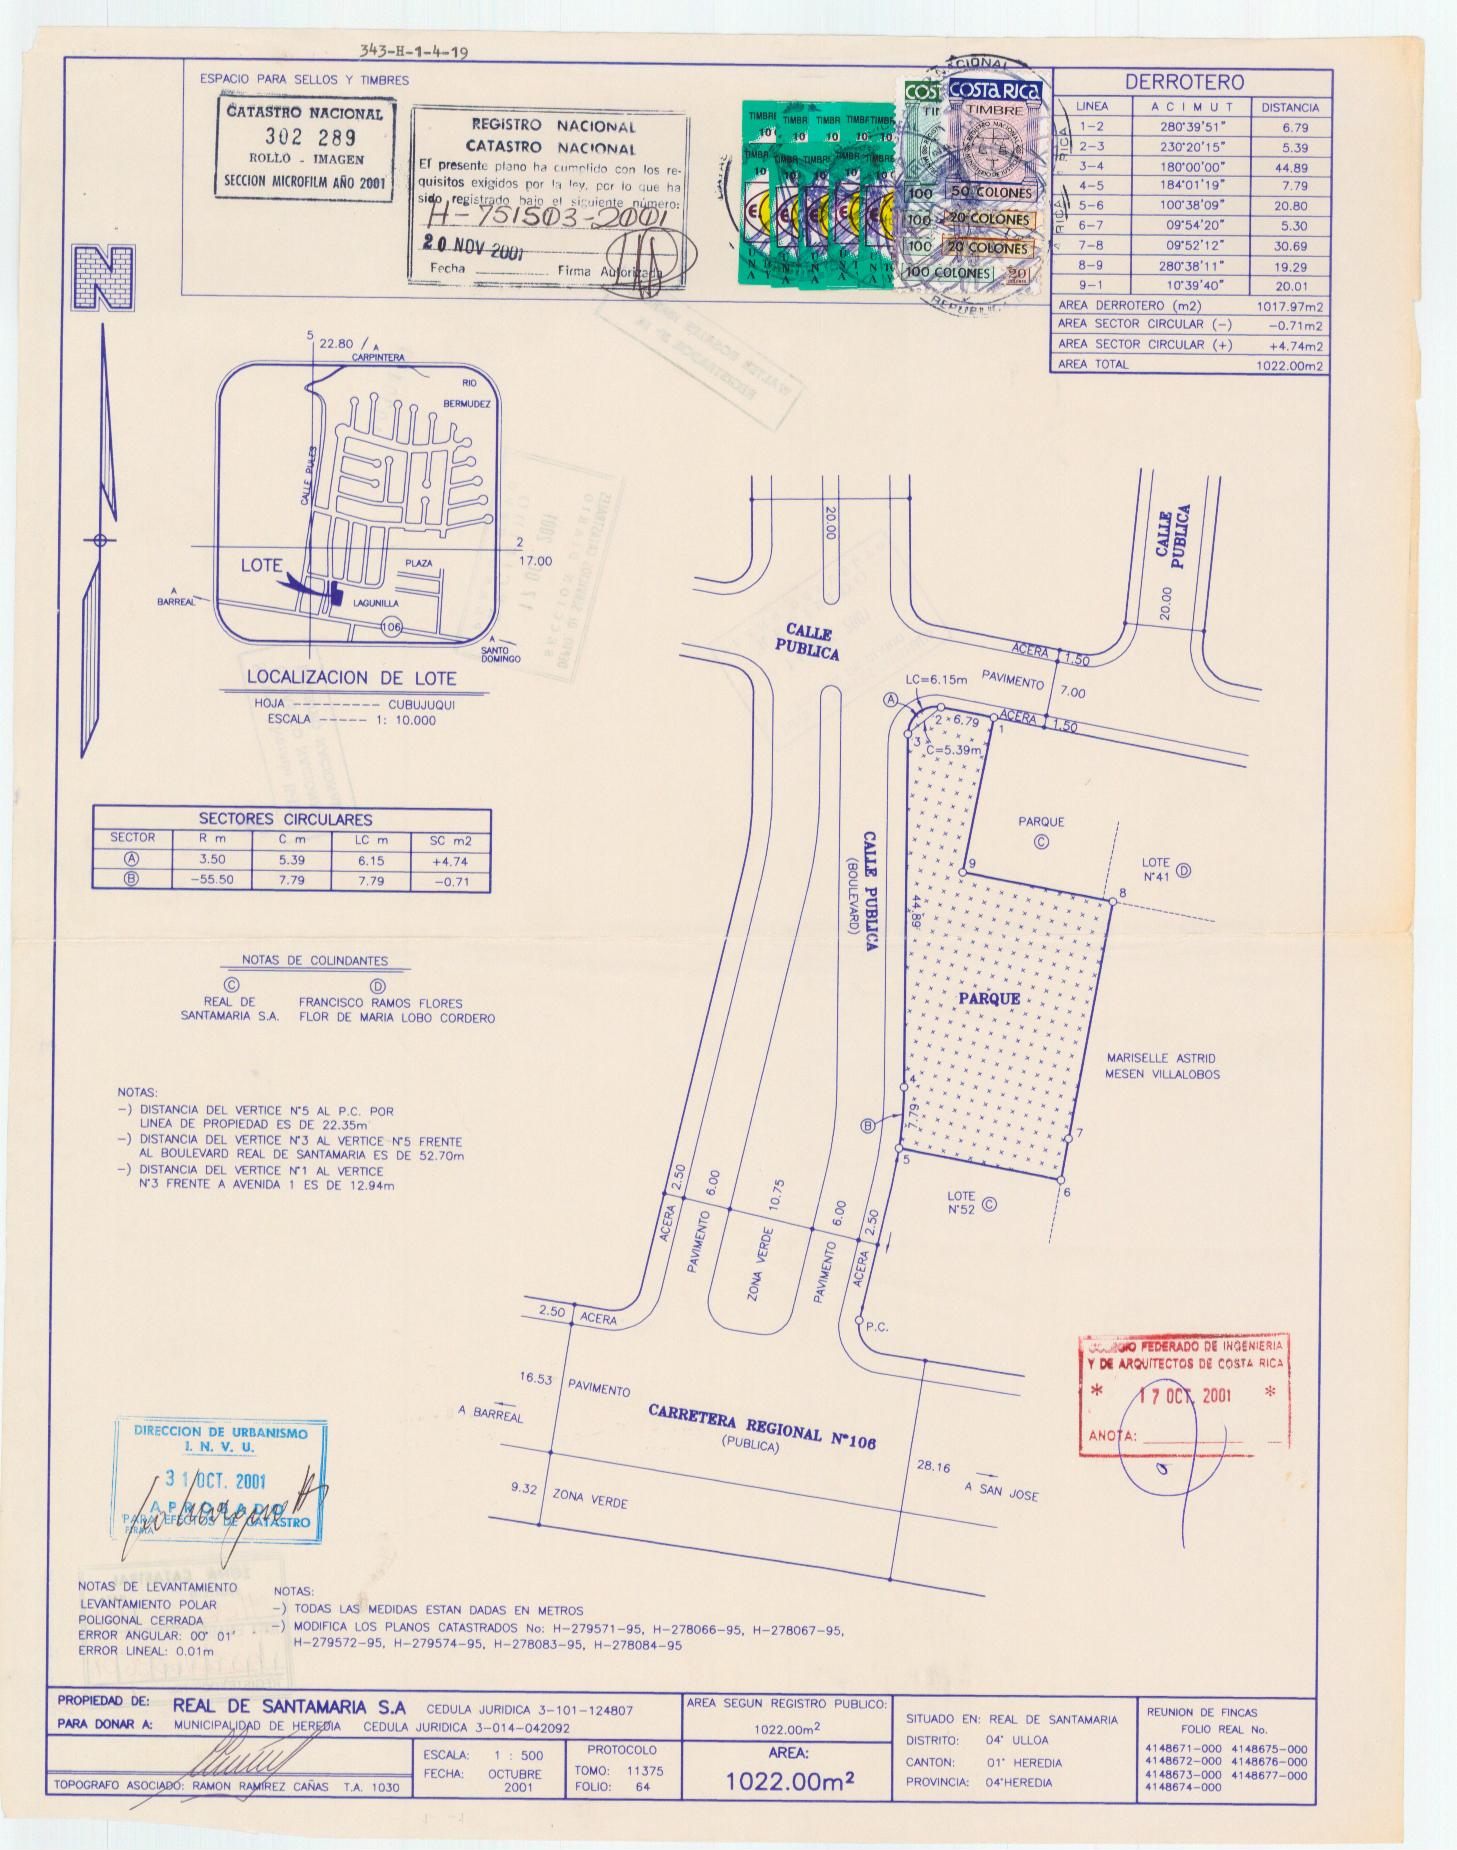 343-H-1-4-19
ESPACIO PARA SELLOS Y TIMBRES
CATASTRO NACIONAL
302 289
ROLLO - IMAGEN
SECCION MICROFILM AÑO 2001
REGISTRO NACIONAL
CATASTRO NACIONAL
El presente plano ha cumplido con los re-
quisitos exigidos por la ley, por lo que ha
sido registrado bajo el siguiente número:
H-751503-2001
20 NOV 2001
Fecha Firma Autorizada
TIMBRE TIMBRE TIMBRE TIMBRE
10 10 10 10
COSTA RICA
TIMBRE
100 50 COLONES
100 20 COLONES
100 20 COLONES
100 COLONES 20
DERROTERO
LINEA ACIMUT DISTANCIA
1-2 280°39'51" 6.79
2-3 230°20'15" 5.39
3-4 180°00'00" 44.89
4-5 184°01'19" 7.79
5-6 100°38'09" 20.80
6-7 09°54'20" 5.30
7-8 09°52'12" 30.69
8-9 280°38'11" 19.29
9-1 10°39'40" 20.01
AREA DERROTERO (m2) 1017.97m2
AREA SECTOR CIRCULAR (-) -0.71m2
AREA SECTOR CIRCULAR (+) +4.74m2
AREA TOTAL 1022.00m2
N
5 22.80 / A
CARPINTERA
RIO
BERMUDEZ
CALLE RULES
2
17.00
LOTE
PLAZA
A
BARREAL
LAGUNILLA
106
A
SANTO
DOMINGO
LOCALIZACION DE LOTE
HOJA --------- CUBUJUQUI
ESCALA ----- 1: 10.000
SECTORES CIRCULARES
SECTOR R m C m LC m SC m2
A 3.50 5.39 6.15 +4.74
B -55.50 7.79 7.79 -0.71
NOTAS DE COLINDANTES
C D
REAL DE FRANCISCO RAMOS FLORES
SANTAMARIA S.A. FLOR DE MARIA LOBO CORDERO
NOTAS:
-) DISTANCIA DEL VERTICE N°5 AL P.C. POR
LINEA DE PROPIEDAD ES DE 22.35m
-) DISTANCIA DEL VERTICE N°3 AL VERTICE N°5 FRENTE
AL BOULEVARD REAL DE SANTAMARIA ES DE 52.70m
-) DISTANCIA DEL VERTICE N°1 AL VERTICE
N°3 FRENTE A AVENIDA 1 ES DE 12.94m
20.00
CALLE
PUBLICA
20.00
CALLE
PUBLICA
ACERA 1.50
PAVIMENTO 7.00
ACERA 1.50
LC=6.15m
A
2 6.79 1
3 C=5.39m
PARQUE
C
LOTE
N°41 D
9
8
CALLE PUBLICA
(BOULEVARD)
44.89
PARQUE
MARISELLE ASTRID
MESEN VILLALOBOS
4
B 7.79
7
5
6
LOTE
N°52 C
2.50 6.00 10.75 6.00 2.50
ACERA PAVIMENTO ZONA VERDE PAVIMENTO ACERA
P.C.
2.50 ACERA
16.53 PAVIMENTO
A BARREAL
CARRETERA REGIONAL N°106
(PUBLICA)
28.16
A SAN JOSE
9.32 ZONA VERDE
COLEGIO FEDERADO DE INGENIERIA
Y DE ARQUITECTOS DE COSTA RICA
* 17 OCT. 2001 *
ANOTA:
DIRECCION DE URBANISMO
I. N. V. U.
31 OCT. 2001
APROBADO
PARA EFECTOS DE CATASTRO
FIRMA
NOTAS DE LEVANTAMIENTO
LEVANTAMIENTO POLAR
POLIGONAL CERRADA
ERROR ANGULAR: 00° 01'
ERROR LINEAL: 0.01m
NOTAS:
-) TODAS LAS MEDIDAS ESTAN DADAS EN METROS
-) MODIFICA LOS PLANOS CATASTRADOS No: H-279571-95, H-278066-95, H-278067-95,
H-279572-95, H-279574-95, H-278083-95, H-278084-95
PROPIEDAD DE: REAL DE SANTAMARIA S.A CEDULA JURIDICA 3-101-124807
PARA DONAR A: MUNICIPALIDAD DE HEREDIA CEDULA JURIDICA 3-014-042092
TOPOGRAFO ASOCIADO: RAMON RAMIREZ CAÑAS T.A. 1030
ESCALA: 1 : 500
FECHA: OCTUBRE
2001
PROTOCOLO
TOMO: 11375
FOLIO: 64
AREA SEGUN REGISTRO PUBLICO:
1022.00m²
AREA:
1022.00m²
SITUADO EN: REAL DE SANTAMARIA
DISTRITO: 04° ULLOA
CANTON: 01° HEREDIA
PROVINCIA: 04°HEREDIA
REUNION DE FINCAS
FOLIO REAL No.
4148671-000 4148675-000
4148672-000 4148676-000
4148673-000 4148677-000
4148674-000